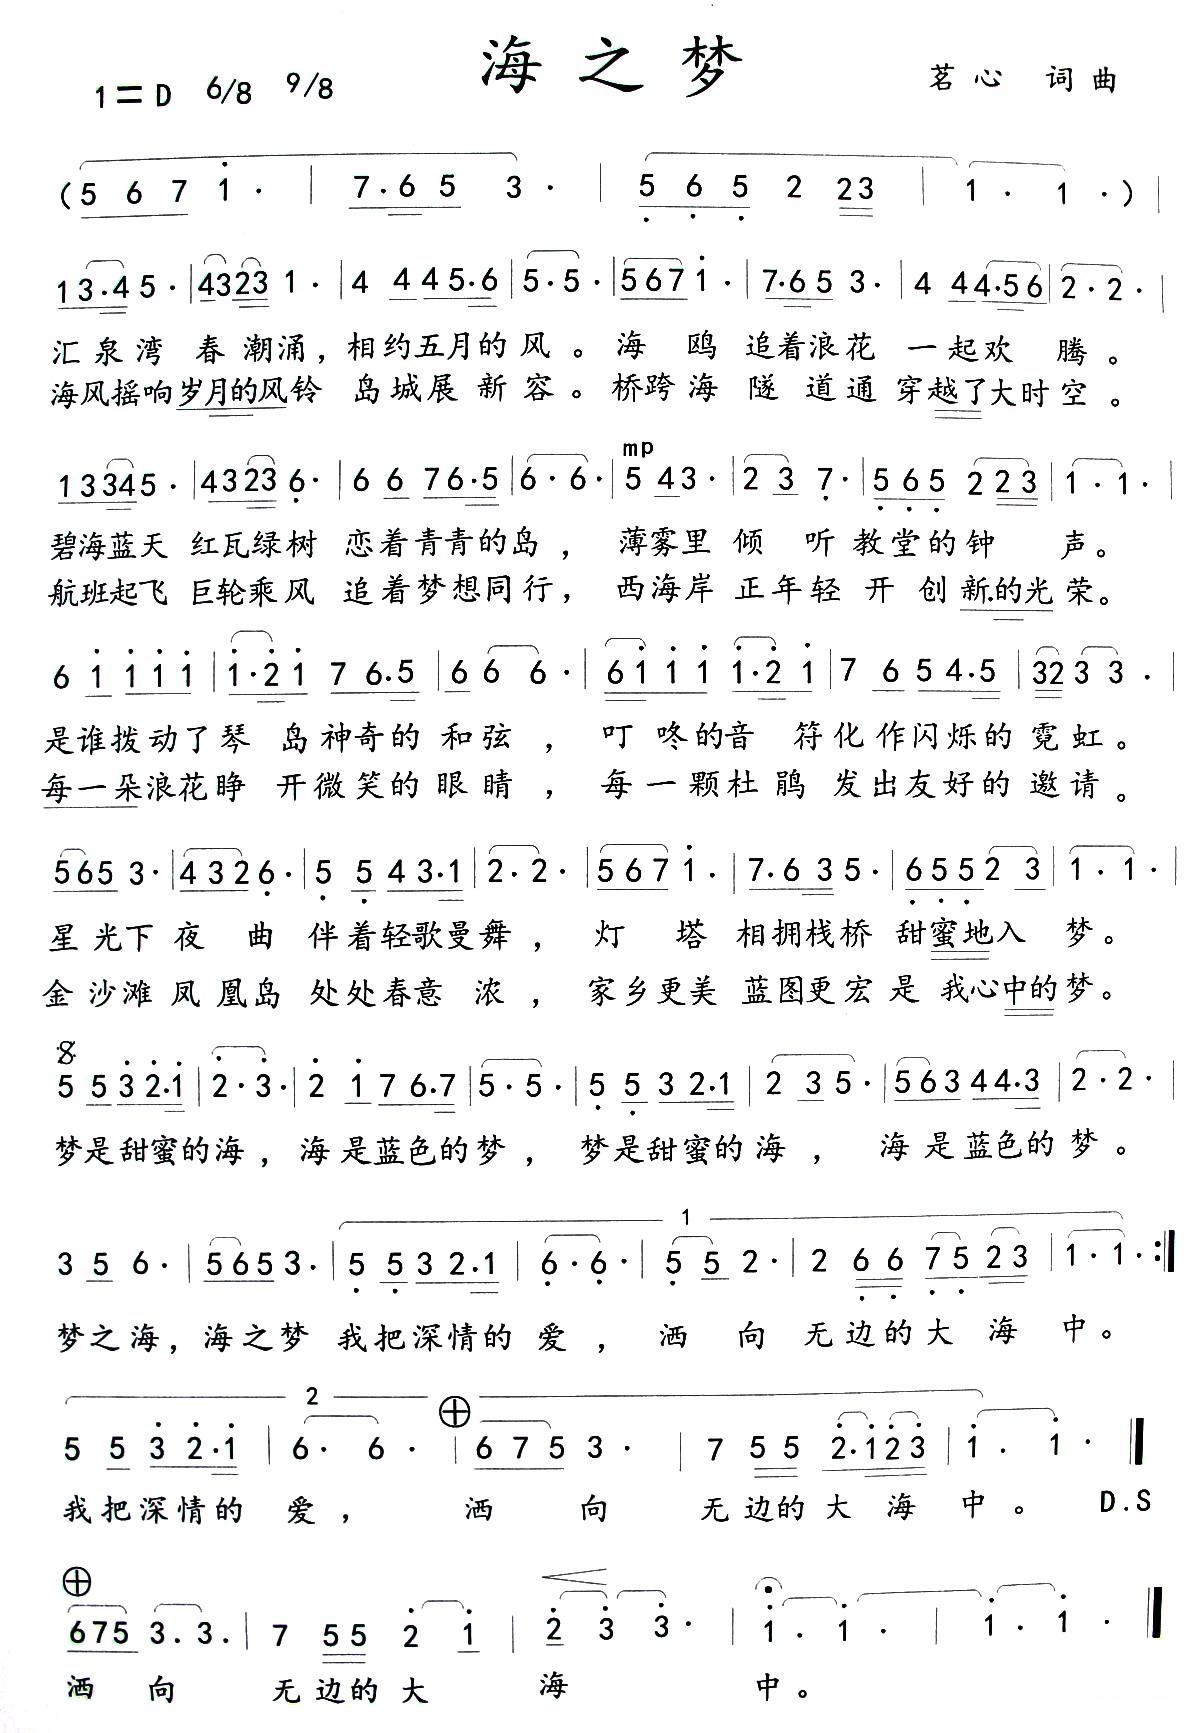 海之梦
1=D 6/8 9/8 茗心 词曲
(5 6 7 1· | 7·6 5 3· | 5 6 5 2 23 | 1· 1·) |
13·45· | 4323 1· | 4 445·6 | 5·5· | 5671· | 7·653· | 4 44·56 | 2·2· |
汇泉湾 春潮涌，相约五月的风。海 鸥 追着浪花 一起欢 腾。
海风摇响岁月的风铃 岛城展新容。桥跨海隧道通穿越了大时空。
13345· | 4323 6· | 6 6 76·5 | 6·6· | mp 5 43· | 2 3 7· | 565 2 23 | 1·1· |
碧海蓝天 红瓦绿树 恋着青青的岛， 薄雾里倾 听教堂的钟 声。
航班起飞 巨轮乘风 追着梦想同行， 西海岸正年轻开创新的光荣。
6 1 1 1 1 | 1·2 1 7 6·5 | 6 6 6· | 6 1 1 1 1·2 1 | 7 6 54·5 | 32 3 3· |
是谁拨动了琴 岛神奇的和弦， 叮咚的音 符化作闪烁的霓虹。
每一朵浪花睁 开微笑的眼睛， 每一颗杜鹃 发出友好的邀请。
5653· | 43 26· | 5 5 43·1 | 2·2· | 5671· | 7·635· | 6552 3 | 1·1· |
星光下夜 曲 伴着轻歌曼舞， 灯 塔 相拥栈桥 甜蜜地入 梦。
金沙滩凤凰岛 处处春意浓， 家乡更美 蓝图更宏是 我心中的梦。
5 532·1 | 2·3· | 2 176·7 | 5·5· | 5 5 32·1 | 2 35· | 56344·3 | 2·2· |
梦是甜蜜的海，海是蓝色的梦，梦是甜蜜的海， 海是蓝色的梦。
1
3 5 6· | 5653· | 5 532·1 | 6·6· | 5 5 2· | 2 6 6 7 5 23 | 1·1· :|
梦之海，海之梦 我把深情的爱， 洒 向 无边的大海 中。
2
5 5 3 2·1 | 6· 6· | 6 7 5 3· | 7 55 2·123 | 1· 1· ‖
我把深情的 爱， 洒 向 无边的大 海 中。 D.S
675 3·3· | 7 55 2 1 | 2 3 3· | 1· 1· | 1· 1· ‖
洒 向 无边的大 海 中。